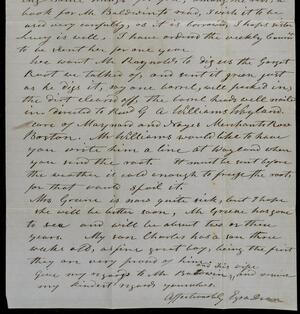 book for Mr Baldwin to read, I wish it to be
used very carefully, as it is borrowed, I hope sister
is well, I have ordered the weekly
to be sent her for one year.
We want Mr Raynolds to dig us the Garget
Root we talked of, and sent it green just
as he digs it, say one barrel, well packed in,
the dirt cleared off, the barrel heads well written
in directed to Revd G A Williams Wayland.
Care of Maynard and Noyes Merchants Row
Boston. Mr Williams would like to have
you write him a line at Wayland when
you send the roots. It must be sent before
the weather is cold enough to freeze the roots
for that would spoil it.
Mrs Greene is now quite sick, but I hope
she will be better soon, Mr Greene has gone
to sea and will be about two or three
years. My son Charles has a son three
weeks old, a fine great boy, being the first
they are very proud of him
and his wife
Give my regards to Mr Baldwin, and receive
my kindest regards yourselves.
Affectionately